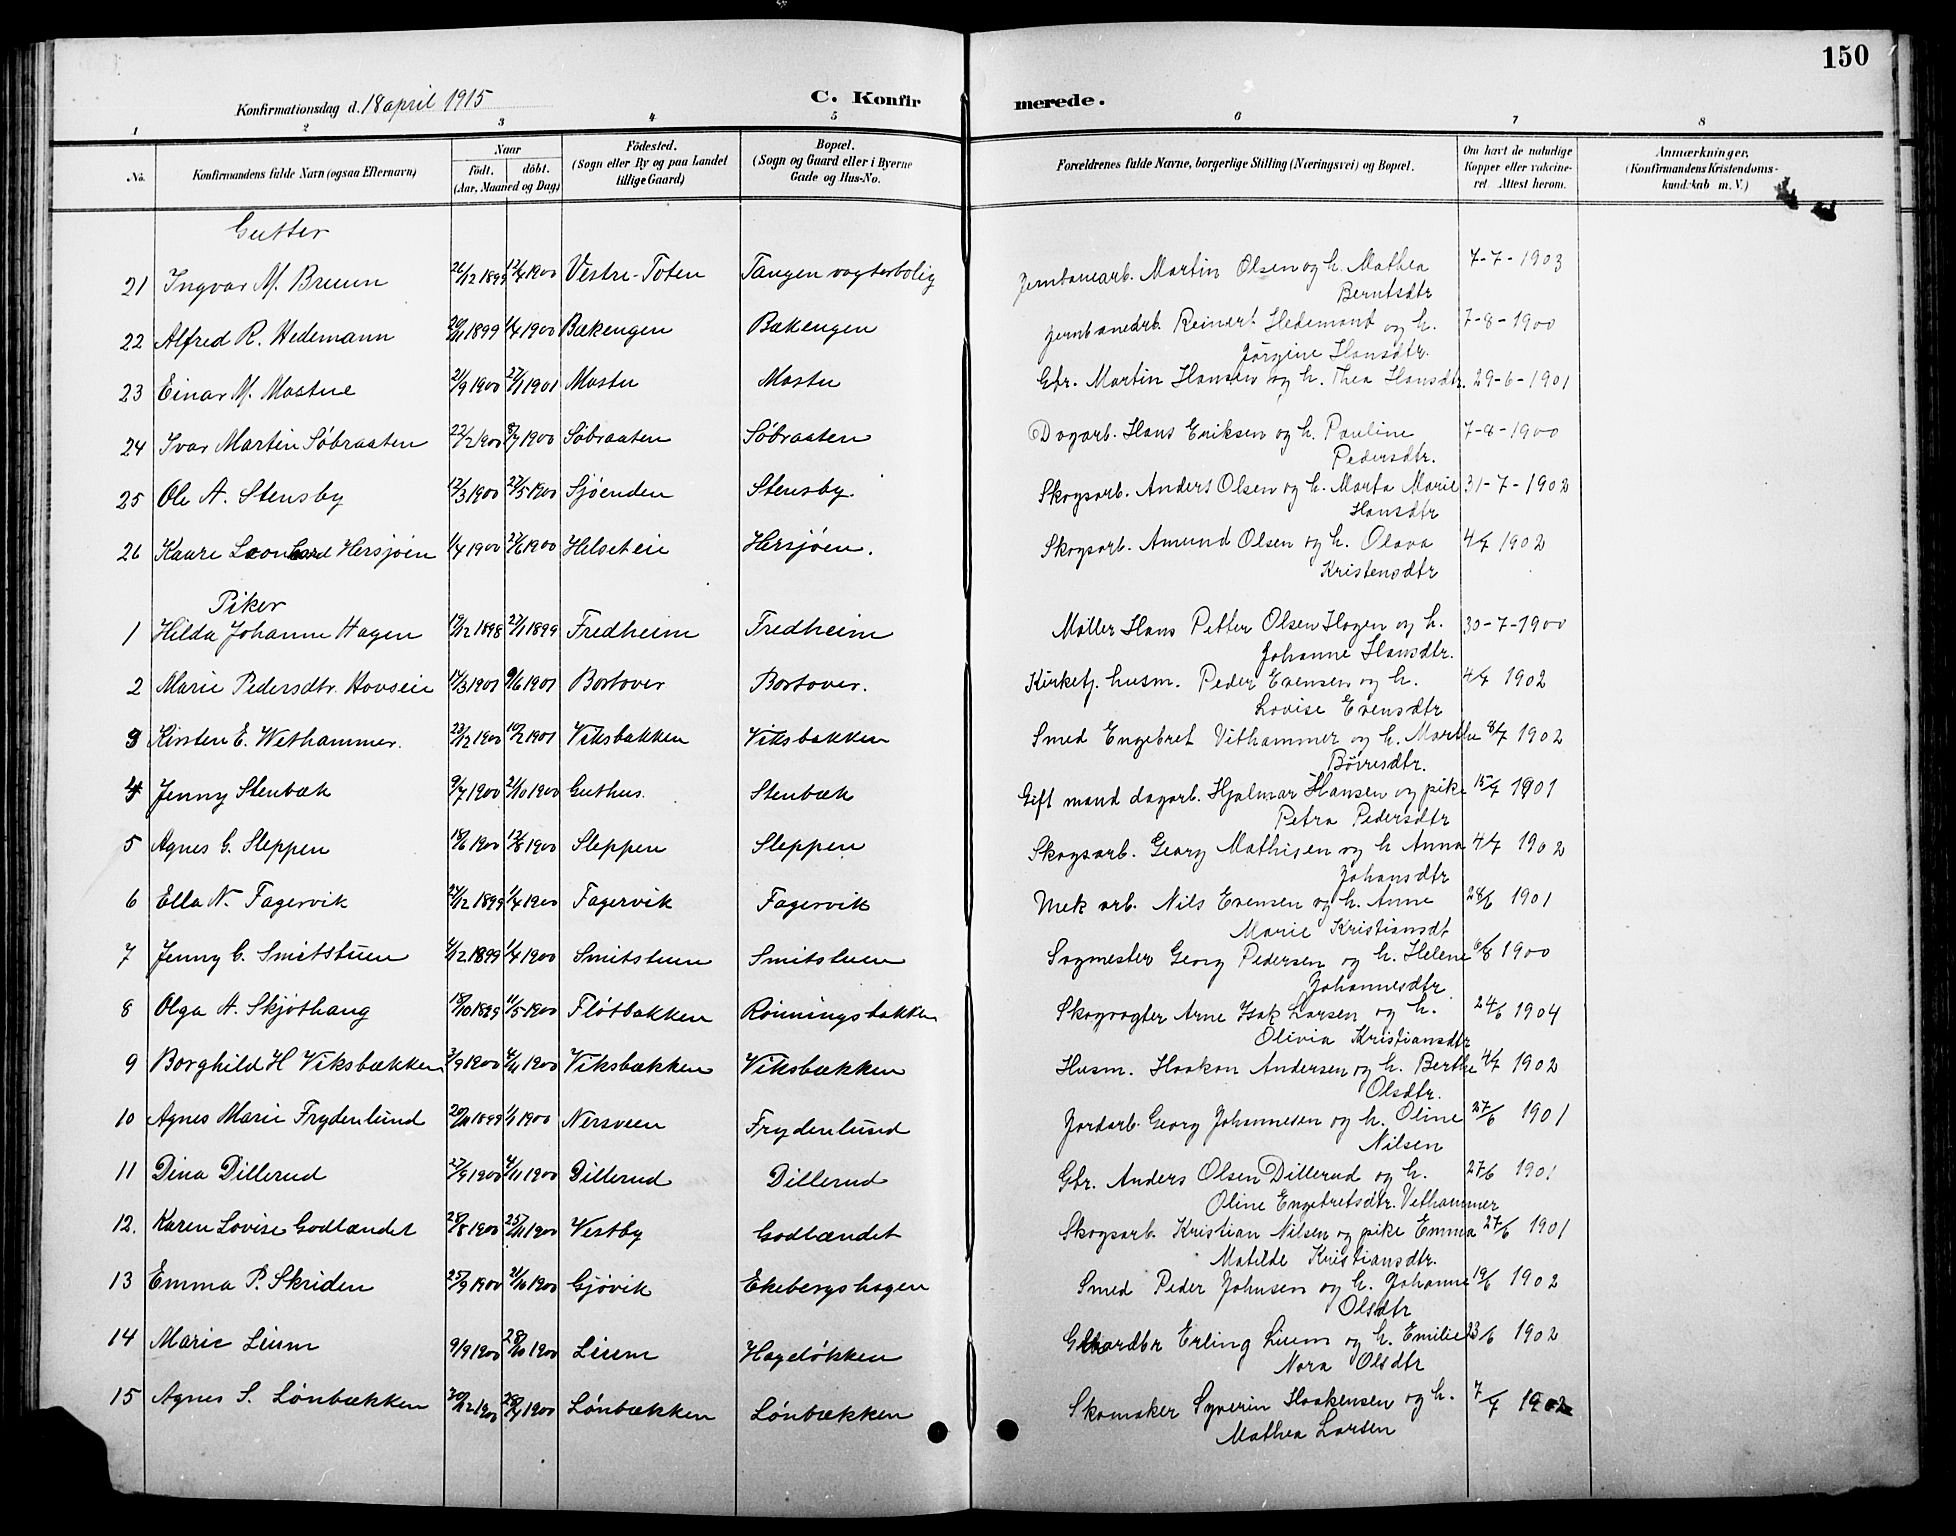 150
Konfirmationsdag d. 18 april 1915 C. Konfirmerede.
1 2 3 4 5 6 7 8
No. Konfirmandens fulde Navn (ogsaa Efternavn) Naar födt. döbt. (Aar, Maaned og Dag) Födested. (Sogn eller By og paa Landet tillige Gaard) Bopæl. (Sogn og Gaard eller i Byerne Gade og Hus-No. Forældrenes fulde Navne, borgerlige Stilling (Næringsvei) og Bopæl. Om havt de naturlige Kopper eller vakcineret. Attest herom. Anmærkninger. (Konfirmandens Kristendomskundskab m. V.)
Gutter
21 Ingvar M. Bruun 26/12 1899 12/4 1900 Vestre-Toten Tangen vogterbolig Jernbanearb. Martin Olsen og h. Mathea 7-7-1903
Berntsdtr
22 Alfred R. Hedemann 20/11 1899 1/4 1900 Bækengen Bækengen Jernbanearb. Reinert Hedemann og h. 7-8-1900
Jörgine Hansdtr.
23 Einar M. Mastue 21/9 1900 27/1 1901 Mastu Mastu Gbr. Martin Hansen og h. Thea Hansdtr. 29-6-1901
24 Ivar Martin Söbraaten 22/2 1900 8/7 1900 Söbraaten Söbraaten Dagarb. Hans Eriksen og h. Pauline 7-8-1900
Pedersdtr.
25 Ole A. Stensby 12/3 1900 27/5 1900 Sjöenden Stensby. Skogsarb. Anders Olsen og h. Marta Marie 31-7-1902
Hansdtr
26 Kaare Leonhard Hersjöen 1/4 1900 27/6 1900 Helseteie Hersjöen. Skogsarb. Amund Olsen og h. Olava 4/7 1902
Kristensdtr
Piker
1 Hilda Johanne Hagen 19/12 1898 27/1 1899 Fredheim Fredheim Möller Hans Petter Olsen Hagen og h. 30-7-1900
Johanne Hansdtr.
2 Marie Pedersdtr. Hovseie 17/3 1901 9/6 1901 Bortover Bortover. Kirketj. husm. Peder Evensen og h. 4/7 1902
Lovise Evensdtr
3 Kirsten E. Wethammer. 23/12 1900 10/2 1901 Viksbakken Viksbakken Smed Engebret Vethammer og h. Marthe 8/7 1902
4 Jenny Stenbæk 9/7 1900 21/10 1900 Guthus. Stenbæk Gift mand dagarb. Hjalmar Hansen og pike 15/7 1901
Petra Pedersdtr
5 Agnes G. Sleppen 18/6 1900 12/8 1900 Sleppen Sleppen Skogsarb. Georg Mathisen og h Anna 4/7 1902
Johansdtr
6 Ella N. Fagervik 27/12 1899 1/4 1900 Fagervik Fagervik Mek arb. Nils Evensen og h. Anne 28/6 1901
Marie Kristiansdt
7 Jenny G. Smitstuen 4/12 1899 1/4 1900 Smitstuen Smitstuen Sagmester Georg Pedersen og h. Helene 6/8 1900
Johannesdtr.
8 Olga A. Skjöthaug 18/10 1899 11/5 1900 Flötbakken Rönningsbakken Skogvogter Arne Isak Larsen og h. 24/6 1904
Olivia Kristiansdtr
9 Borghild H Viksbækken 3/9 1900 4/11 1900 Viksbækken Viksbækken Husm. Haakon Andersen og h. Berthe 4/7 1902
Olsdtr.
10 Agnes Marie Frydenlund 20/11 1899 1/1 1900 Nersveen Frydenlund Jordarb. Georg Johannesen og h. Oline 27/6 1901
Nilsen
11 Dina Dillerud 27/9 1900 4/11 1900 Dillerud Dillerud Gbr. Anders Olsen Dillerud og h. 27/6 1901
Oline Engebretsdtr. Vethammer
12. Karen Lovise Godlændet 28/8 1900 25/11 1900 Vestby Godlændet Skogsarb. Kristian Nilsen og pike Emma 27/6 1901
Matilde Kristiansdtr.
13 Emma P. Skriden 25/9 1900 21/10 1900 Gjövik Ekebergshagen Smed Peder Johnsen og h. Johanne 19/6 1902
Olsdtr
14 Marie Lium 9/9 1900 28/10 1900 Lium Hagelökken Gaardbr Erling Lium og h. Emilie 23/6 1902
Nora Olsdtr
15 Agnes S. Lönbækken 20/12 1900 Lönbækken Lönbækken Skomaker Syverin Haakensen og h. 7/7 1902
Mathea Larsen